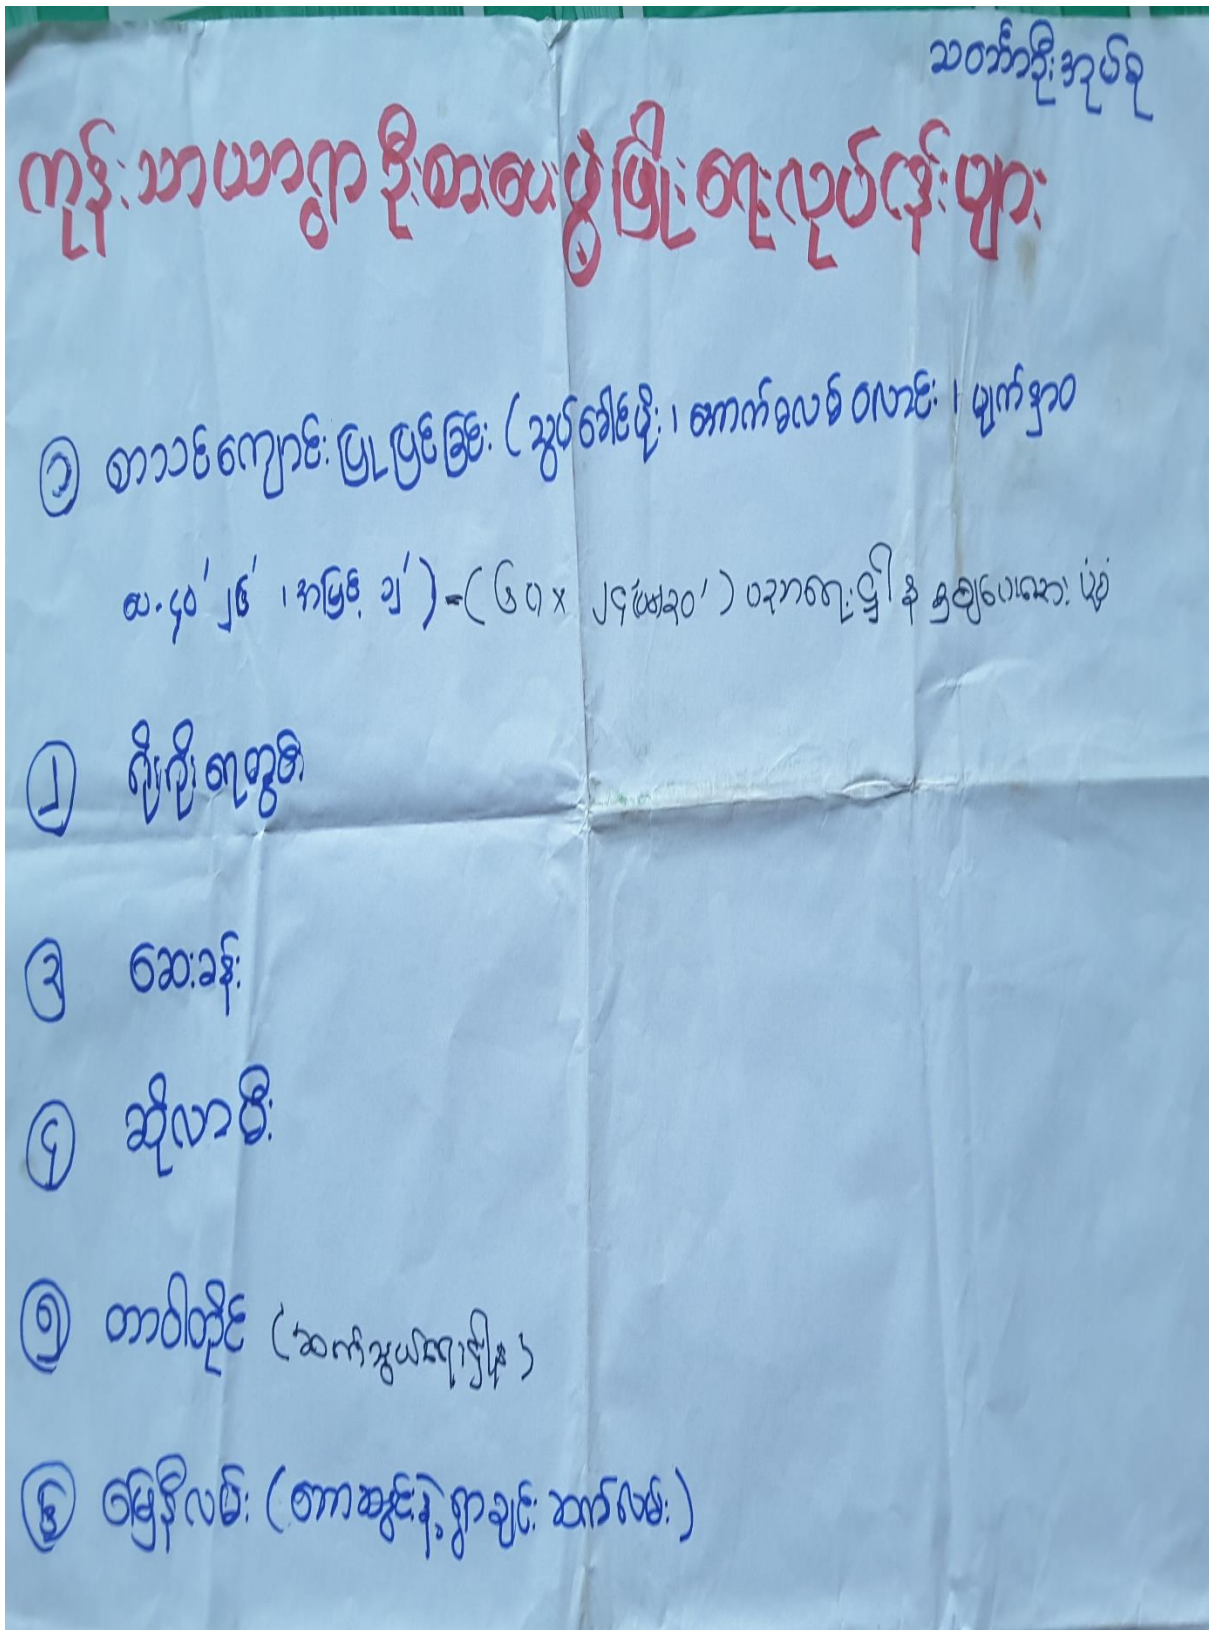 သင်္ဘောဦးအုပ်စု
ကုန်းသာယာရွာဦးစားပေးဖွံ့ဖြိုးရေးလုပ်ငန်းများ
၁ စာသင်ကျောင်းပြုပြင်ခြင်း (သွပ်ခေါင်မိုး၊ အောက်ခလစ်ဝလာင်း၊ မျက်နှာဝ
ယ.၄၀' ၂၆' ၊ အမြင့် ၁၂') = ( ၆၀ x ၂၄ ၃၀' ) ပညာရေးဌါန မှချပေးသော ပုံစံ
၂ ရိုးရိုးရေတွင်း
၃ ဆေးခန်း
၄ ဆိုလာမီး
၅ တာဝါတိုင် (ဆက်သွယ်ရေးဌါန)
၆ မြေနီလမ်း (တောအတွင်းနဲ့ ရွာချင်းဆက်လမ်း)